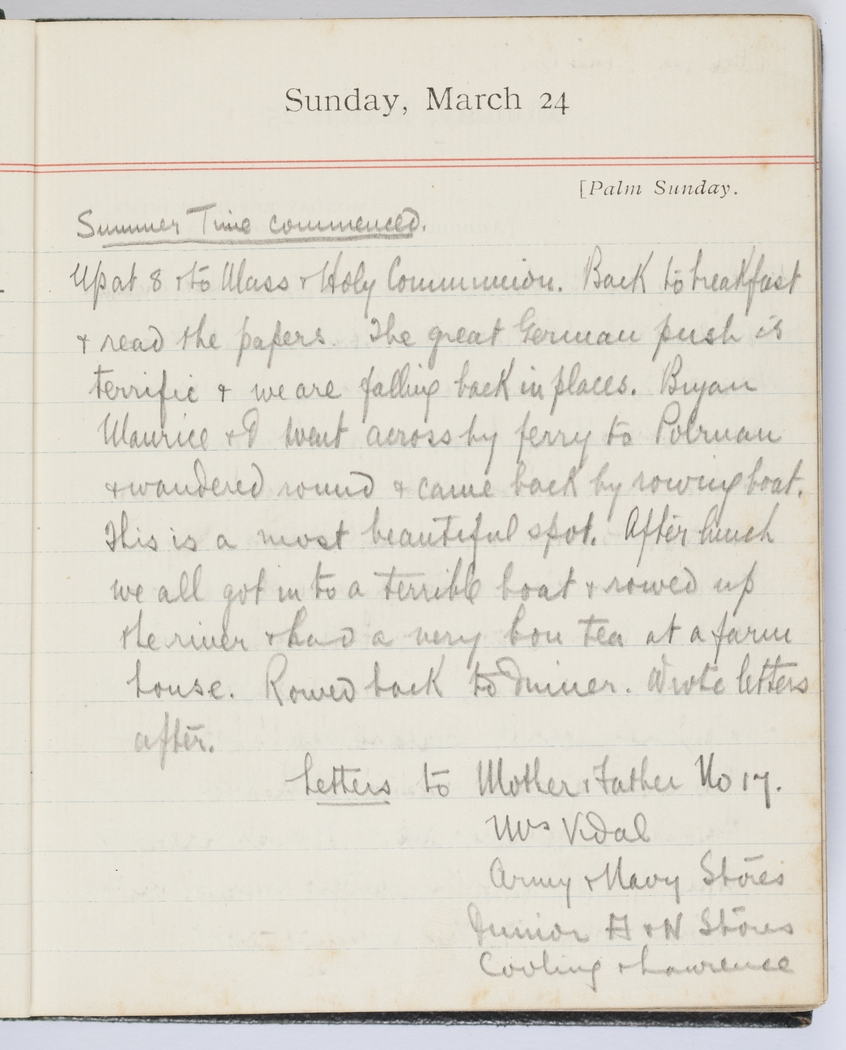 Sunday, March 24
[Palm Sunday.
Summer Time commenced.
Up at 8 & to Mass & Holy Communion. Back to breakfast
& read the papers. The great German push is
terrific & we are falling back in places. Bryan
Maurice & I went across by ferry to Polruan
& wandered round & came back by rowing boat.
This is a most beautiful spot. After lunch
we all got in to a terrible boat & rowed up
the river & had a very bon tea at a farm
house. Rowed back to dinner. Wrote letters
after.
Letters to Mother & Father No 17.
Mrs Vidal
Army & Navy Stores
Junior A & N Stores
Cooling & Lawrence